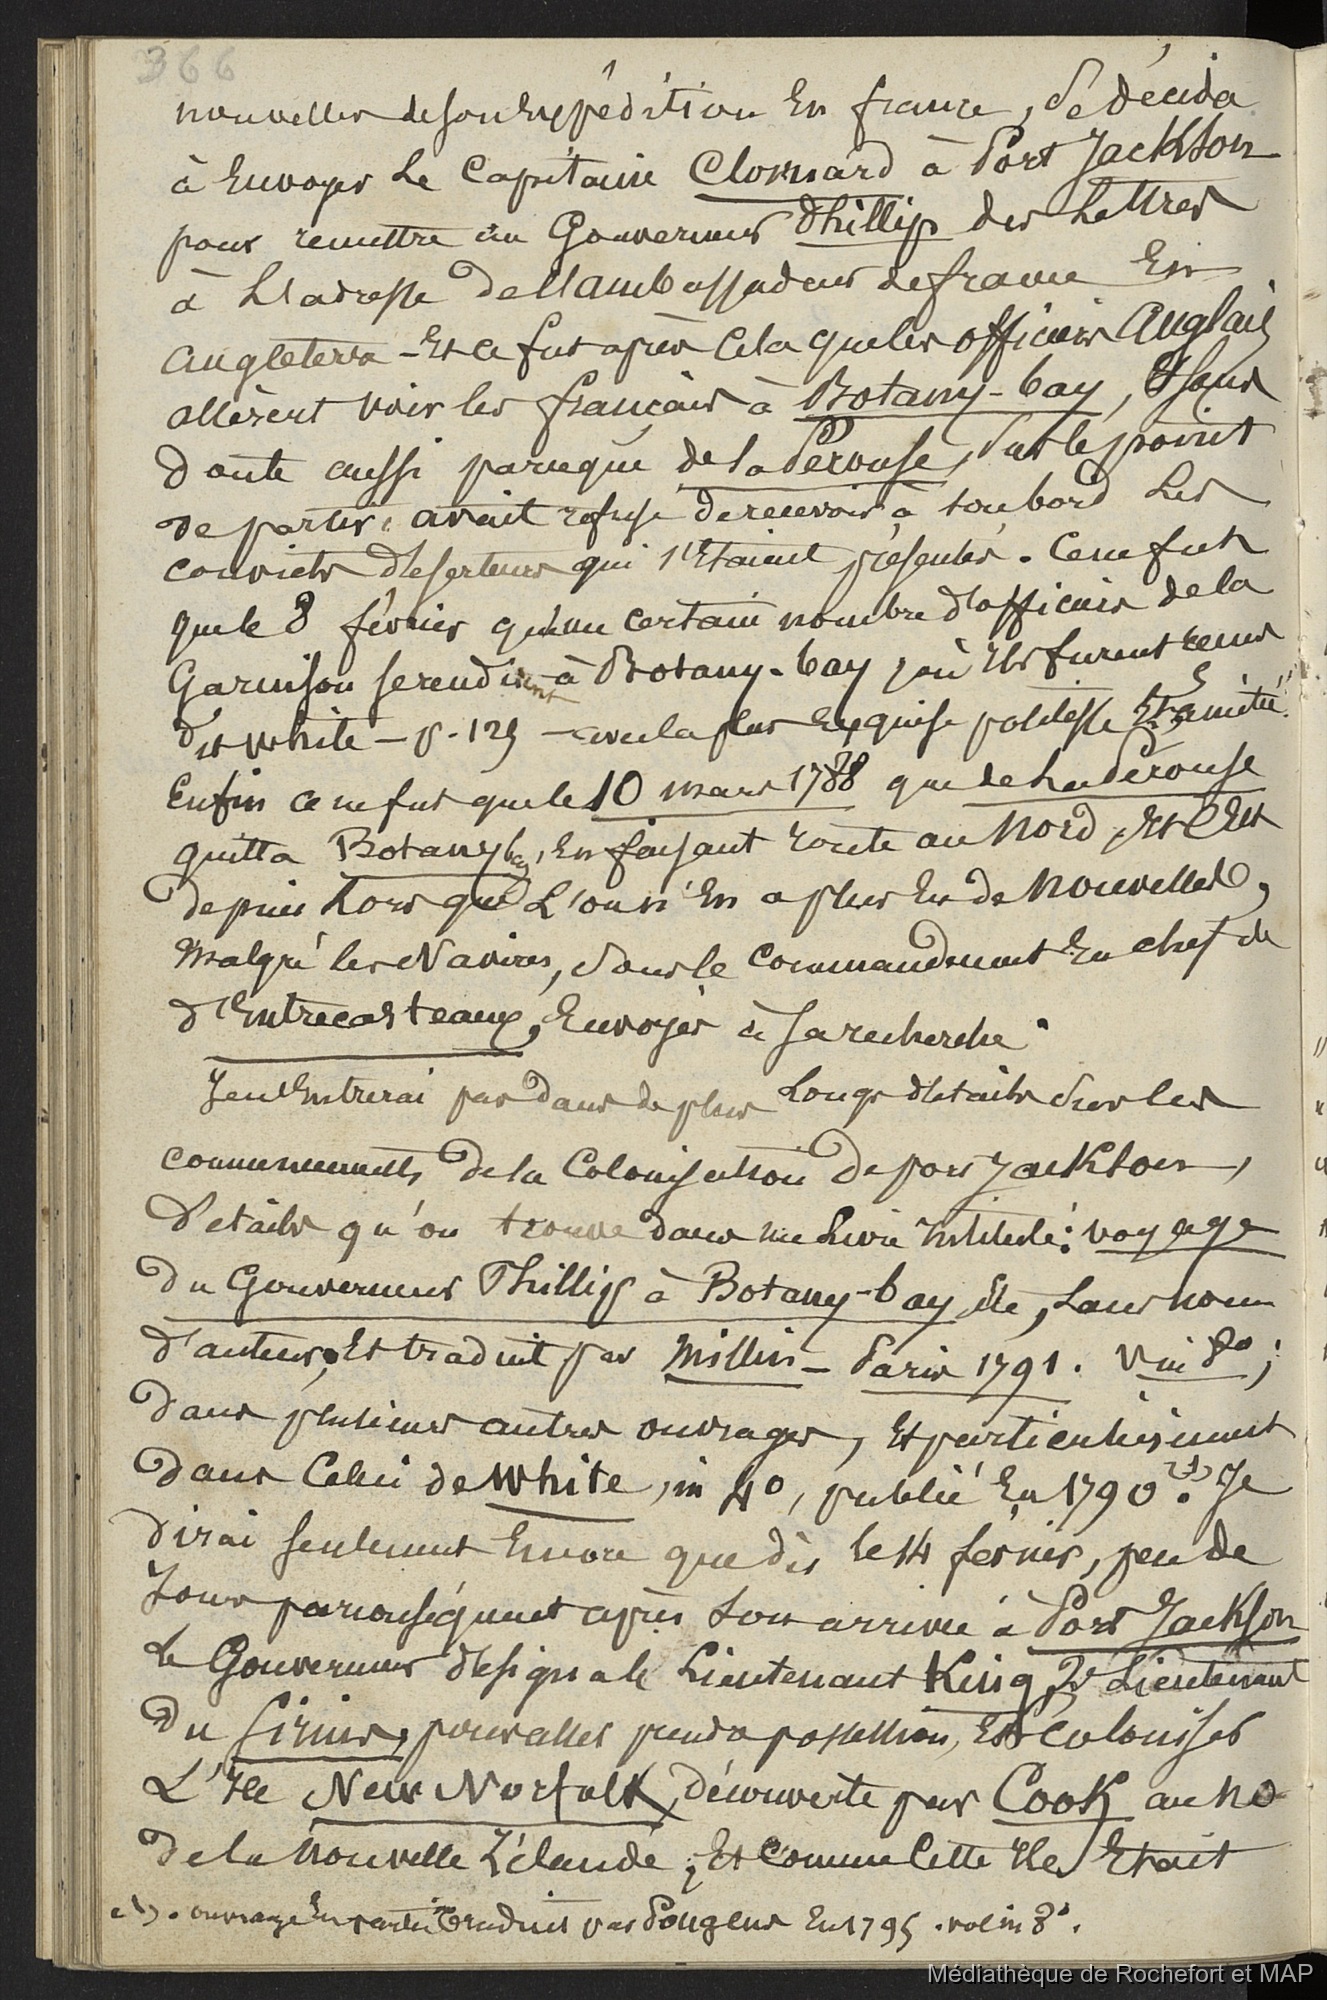 366
nouvelles de son Expédition En france, se décida
à Envoyer le Capitaine Clonnard à Port Jackson
pour remettre au Gouverneur Phillip des Lettres
à L'adresse de l'ambassadeur de france En
angleterre - Et ce fut après cela que les officiers Anglais
allèrent voir les français à Botany-bay, Et sans
doute aussi parceque de la Pérouse, sur le point
de partir, avait refusé de recevoir à son bord les
convicts déserteurs qui s'Etaient présentés. Ce ne fut
que le 8 février qu'un certain nombre d'officiers de la
Garnison se rendirent à Botany-bay, où Ils furent reçus
dit White - p. 125 - avec la plus Exquise politesse Et amitié."
Enfin ce ne fut que le 10 mars 1788 que de La Pérouse
quitta Botany bay, En faisant route au Nord, Et c'Est
depuis Lors que L'on n'En a plus Eu de nouvelles,
Malgré les Navires, sous le commandement En chef de
d'Entrecasteaux, Envoyés à sa recherche.
Je n'Entrerai pas dans de plus Longs détails sur les
commencements de la Colonisation de port Jackson,
détails qu'on trouve dans un Livre Intitulé: voyage
du Gouverneur Phillip à Botany-bay Etc, sans nom
d'auteur, Et traduit par Millin - Paris 1791. V in 8o;
dans plusieurs autres ouvrages, Et particulièrement
dans Celui de White, in 4o, publié En 1790 (1). Je
dirai seulement Encore que dès le 14 février, peu de
Jours par conséquent après son arrivée à Port Jackson
Le Gouverneur désigna le Lieutenant King, 2e Lieutenant
du Sirius, pour aller prendre possession, Et coloniser
L'Ile New Norfolk, découverte par Cook au no
de la Nouvelle Zélande; Et comme Cette Ile Etait
(1). ouvrage En partie traduit par Pougens En 1795. vol in 8o.
Médiathèque de Rochefort et MAP